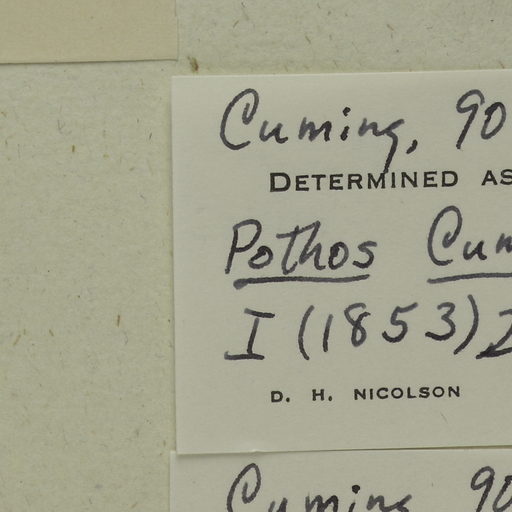 Cuming, 90
DETERMINED AS
Pothos Cum
I (1853)
D. H. NICOLSON
Cuming 90